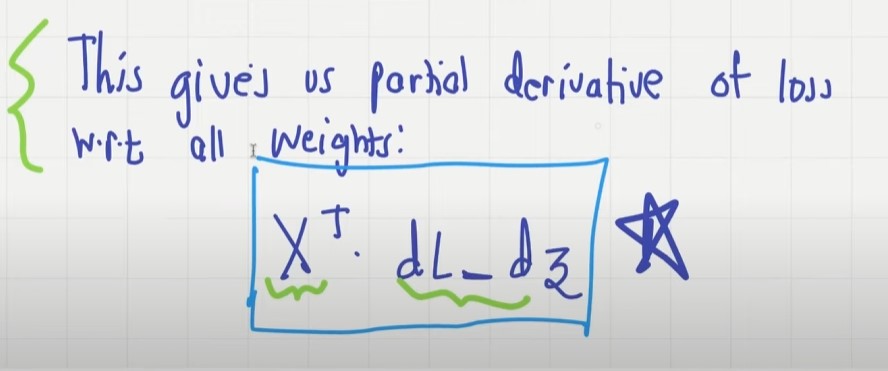 This gives us partial derivative of loss
w.r.t all weights:
X^T. dL_dz